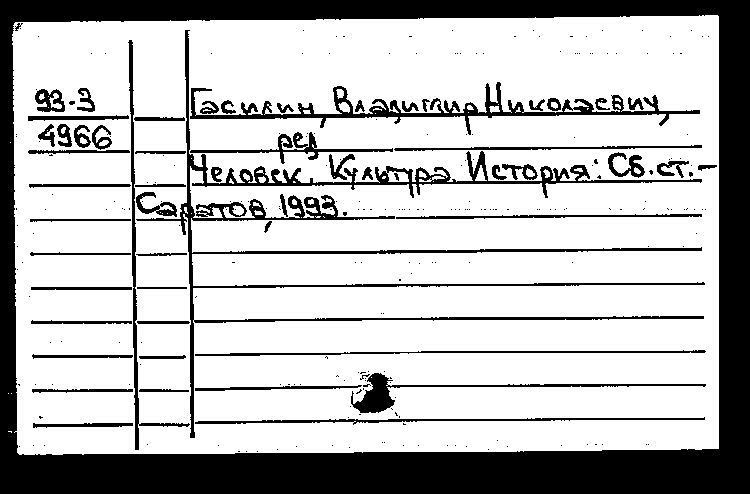 93-3 Гасилин, Владимир Николаевич,
4966 ред
Человек. Культура. История: Сб. ст. –
Саратов, 1993.